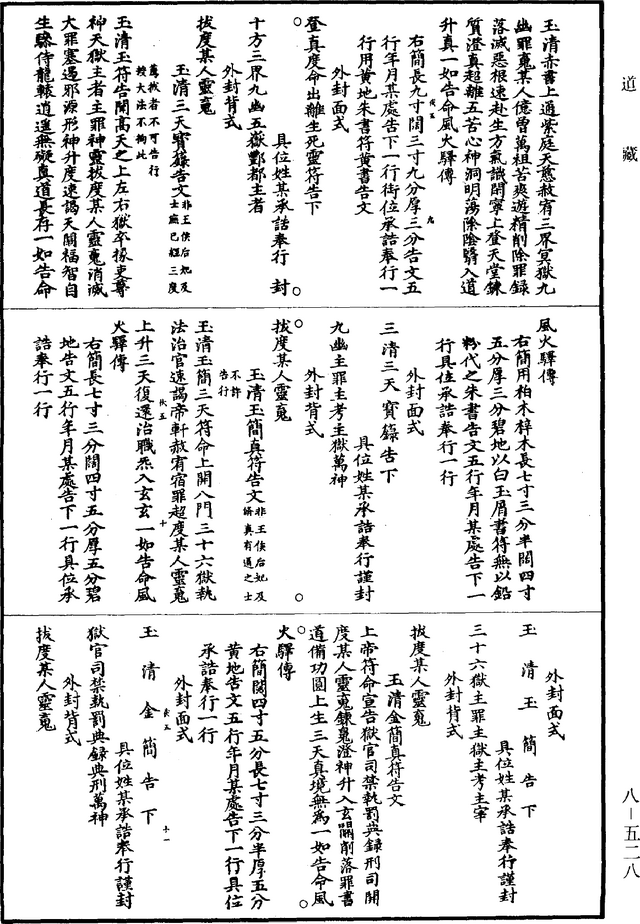 道藏
玉清赤書上通紫庭天慈赦宥三界冥獄九
幽罪䰟某人億曾萬祖苦爽遊精削除罪錄
落滅惡根速赴生方氣識開寧上登天堂鍊
質澄真超離五苦心神洞明蕩除陰翳入道
升真一如告命風火驛傳
右簡長九寸闊三寸九分厚三分告文五
行年月某處告下一行銜位承誥奉行一
行用黄地朱書符黄書告文
外封面式
登真度命出離生死靈符告下
具位姓某承誥奉行 封
十方三界九幽五嶽酆都主者
外封背式
拔度某人靈䰟
玉清三天寶籙告文非王侯后妃及士庶已經三度
薦拔者不可告行
授大法不拘此
玉清玉符告開高天之上左右獄卒掾吏尊
神天獄主者主罪神靈拔度某人靈䰟消滅
大罪塞遏邪源形神升度速謁天關福智自
生驂侍龍轅逍遥無礙真道長存一如告命
風火驛傳
右簡用柏木梓木長七寸三分半闊四寸
五分厚三分碧地以白玉屑書符無以鉛
粉代之朱書告文五行年月某處告下一
行具位承誥奉行一行
外封面式
三清三天寶籙告下
具位姓某承誥奉行謹封
九幽主罪主考主獄萬神
外封背式
拔度某人靈䰟
玉清玉簡真符告文非王侯后妃及脩真有道之士
不許告行
玉清玉簡三天符命上開八門三十六獄執
法治官速謁帝軒赦宥宿罪超度某人靈䰟
上升三天復還治職炁入玄玄一如告命風
火驛傳
右簡長七寸三分闊四寸五分厚五分碧
地告文五行年月某處告下一行具位承
誥奉行一行
外封面式
玉清玉簡告下
具位姓某承誥奉行謹封
三十六獄主罪主獄主考主宰
外封背式
拔度某人靈䰟
玉清金簡真符告文
上帝符命宣告獄官司禁執罰典錄刑司開
度某人靈䰟鍊䰟澄神升入玄關削落罪書
道備功圓上生三天真境無為一如告命風
火驛傳
右簡闊四寸五分長七寸三分半厚五分
黄地告文五行年月某處告下一行具位
承誥奉行一行
外封面式
玉清金簡告下
具位姓某承誥奉行謹封
獄官司禁執罰典錄典刑萬神
外封背式
拔度某人靈䰟
八－五二八